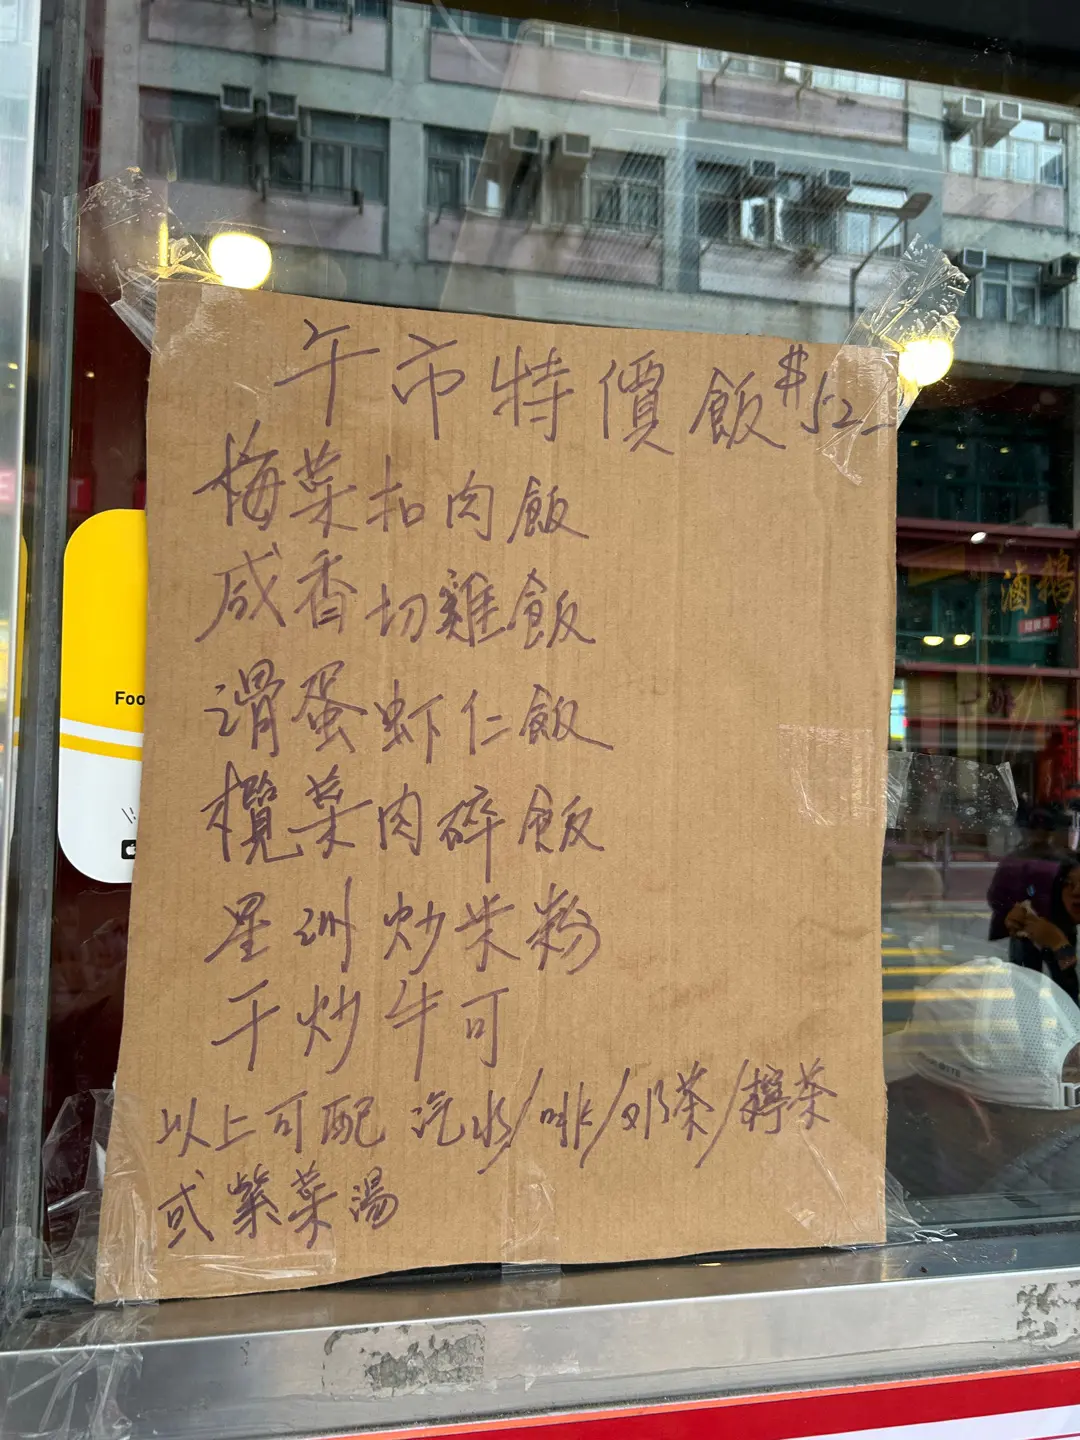 午市特價飯 $52
梅菜扣肉飯
咸香切雞飯
滑蛋虾仁飯
欖菜肉碎飯
星洲炒米粉
干炒牛可
以上可配 汽水/啡/奶茶/檸茶
或紫菜湯
Foo
滷鵝